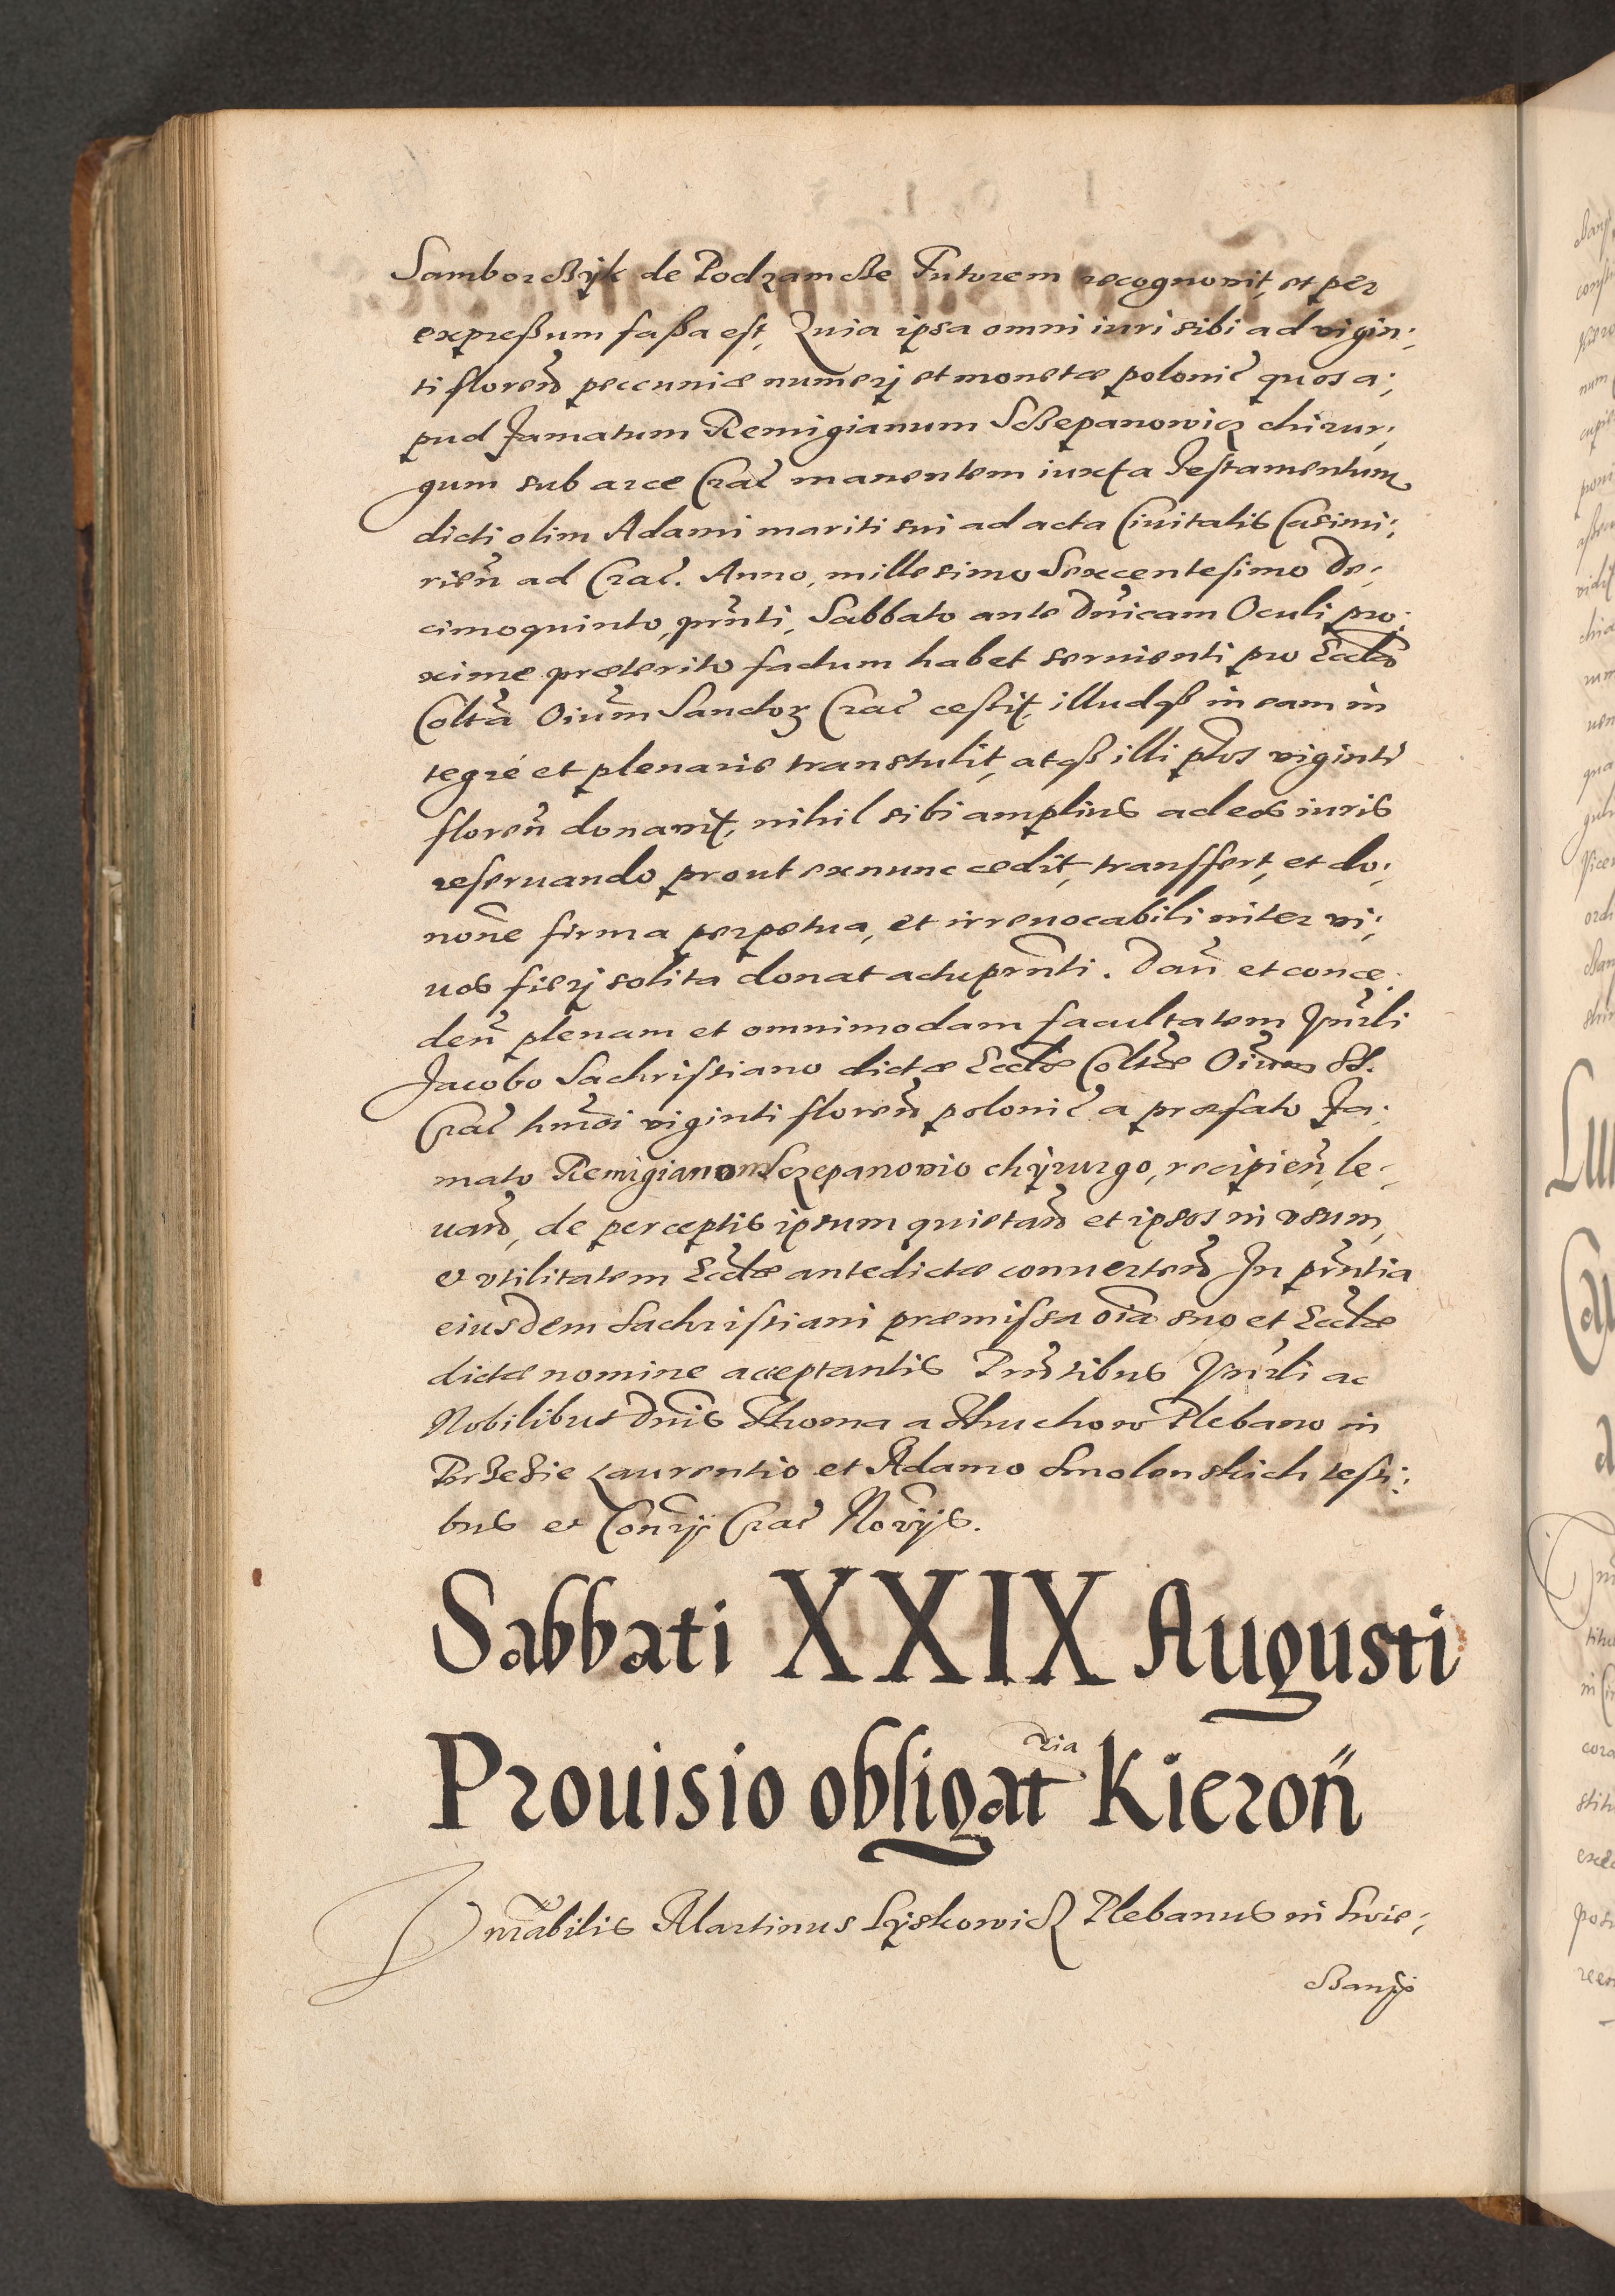 Samborczÿk de Podzamcze Tutorem recognovit, et per
expreßum faßa est, Quia ipsa omni iuri sibi ad vigin:
ti floreñ peccuniæ numerj et monetæ polonic̃ quos a:
pud Famatum Remigianum Sczepanowicz chirur:
gum sub arce Crac̃ manentem iuxta Testamentum
dicti olim Adami mariti sui ad acta Ciuitatis Casimi:
rieñ ad Crac̃. Anno, millesimo Sexcentesimo De:
cimoquinto, prñti, Sabbato ante Dñicam Oculi pro:
xime præterito factum habet seruienti pro Eccl̃a
Collt̃a Oiũm Sanctoꝝ Crac̃ cessit, illudqꝫ in eam in
tegré et plenarie transtulit, atqꝫ illi pt̃os viginti
floreñ donavit, nihil sibi amplius ad eos iuris
reseruando prout exnunc cedit, transffert, et do:
noñe firma perpetua, et irreuocabili inter vi:
uos fierj solita donat actu prñti. Dañ et conce:
deñ plenam et omnimodam facultatem Hnr̃li
Jacobo Sachristiano dictæ Eccl̃æ Collt̃æ Oiũm SS.
Crac̃ hmõi viginti floreñ polonic̃ a præfato Fa:
mato Remigiano Sczepanovio chÿrurgo, recipieñ, le:
uañ, de perceptis ipsum quietañ et ipsos in vsum,
et vtilitatem Eccl̃æ antedictæ conuerteñ In prñtia
eiusdem Sachristiani præmissa oĩa suo et Eccl̃æ
dictæ nomine acceptantis Prñtibus Hnr̃li ac
Nobilibus Dñis Thoma a Thuchow Plebano in
Laurentio et Adamo Smolenskich testi:
bus et Coñrijs Crac̃ Novijs.
Sabbati XXIX Augusti
Prouisio obligat ria Kieroñ
Hnr̃abilis Martinus Lÿskowicz Plebanus in Swie: